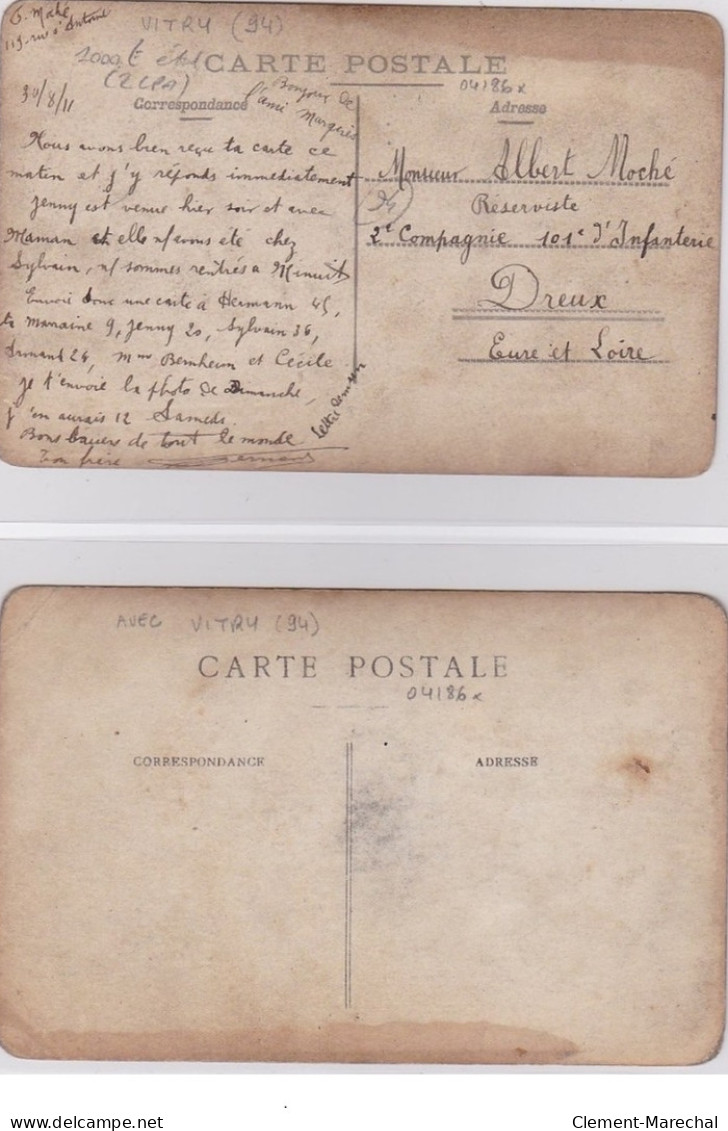 Moché
VITRY (94)
119, rue St Antoine
CARTE POSTALE
(2 CPA)
04186x
30/8/11
Correspondance
Bonjour de
l'ami Marquès
Adresse
Nous avons bien reçu ta carte ce
matin et j'y réponds immédiatement
Jenny est venue hier soir et avec
Maman et elle n/ avons été chez
Sylvain, n/ sommes rentrés à Minuit
Envoie donc une carte à Hermann 45,
ta Marraine 9, Jenny 20, Sylvain 36,
Armand 24, Mme Bernheim et Cécile
je t'envoie la photo de Dimanche,
j'en aurais 12 Samedi
Bons baisers de tout le monde
Ton frère
Lettre demain
Monsieur Albert Moché
Réserviste
(94)
2e Compagnie 101e d'Infanterie
Dreux
Eure et Loire
AVEC VITRY (94)
CARTE POSTALE
04186x
CORRESPONDANCE
ADRESSE
Clement-Marechal